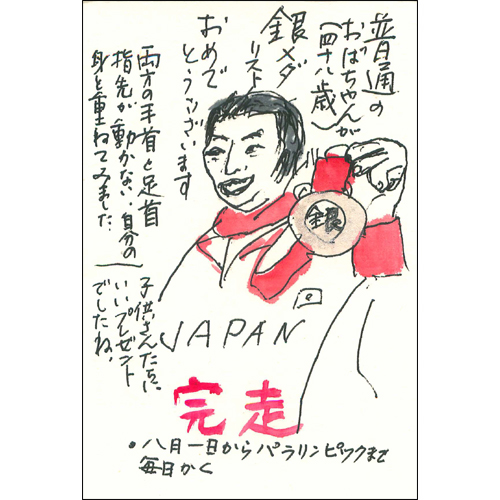 普通の
おばちゃんが
(四十八歳)
銀メダ
リスト
おめで
とうございます
両方の手首と足首
指先が動かない、自分の
身と重ねてみました。
子供さんたちに
いいプレゼント
でしたね、
銀
JAPAN
完走
・八月一日からパラリンピックまで
毎日かく